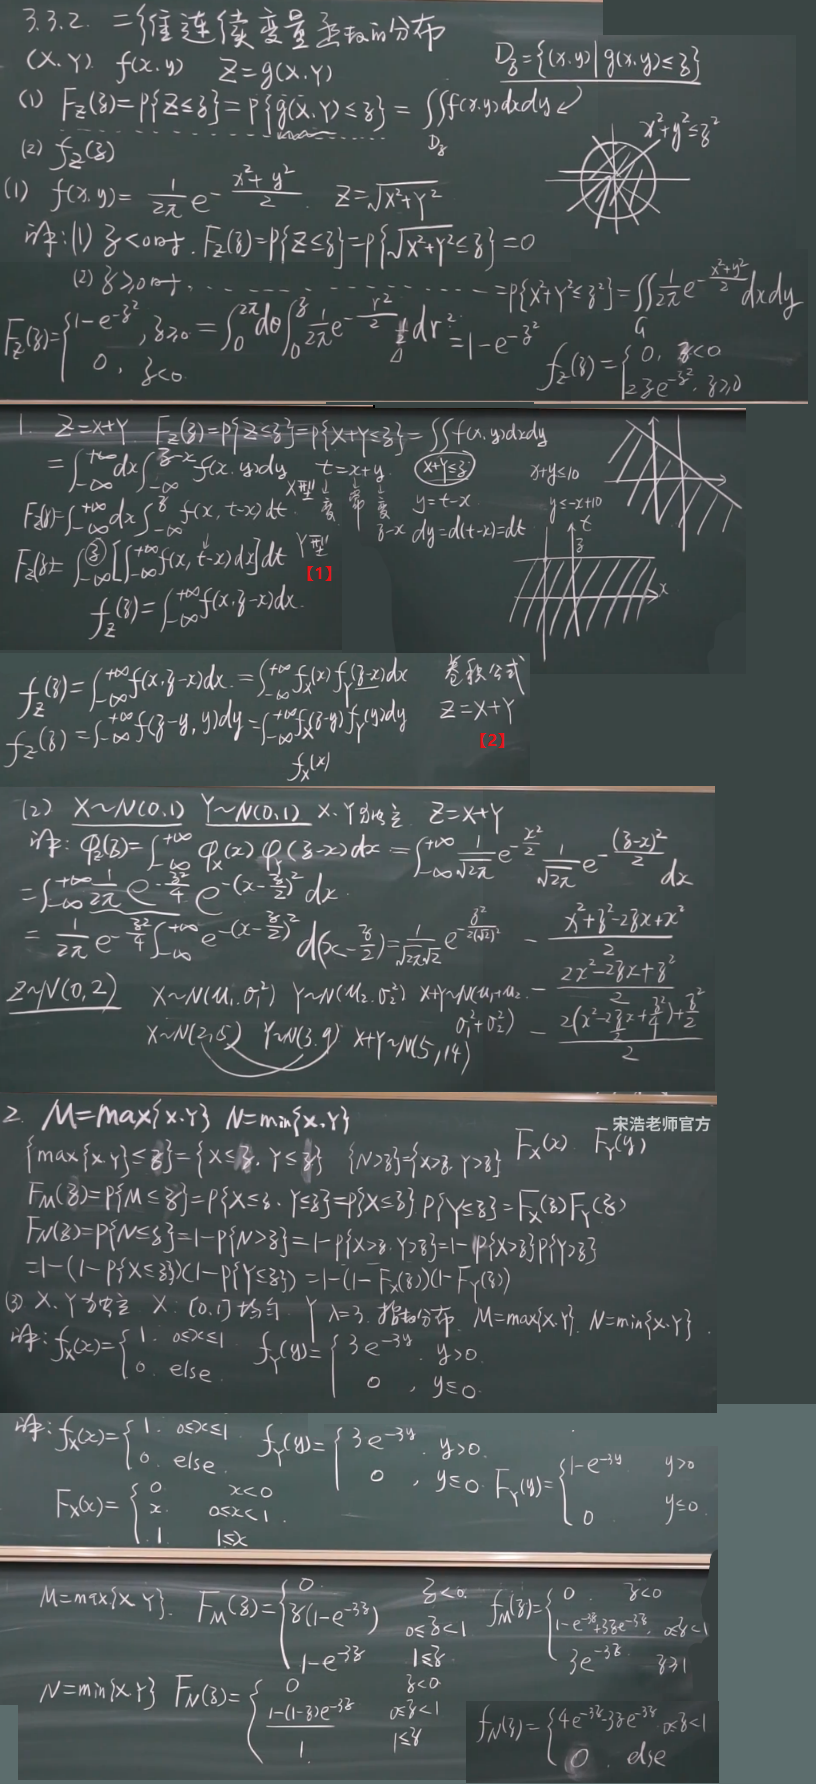 3.3.2. 二维连续变量函数的分布
(X.Y) f(x.y) Z=g(X.Y)
D_z={(x.y)|g(x.y)≤z}
(1) F_Z(z)=P{Z≤z}=P{g(X.Y)≤z}=∬_{D_z}f(x.y)dxdy
(2) f_Z(z)
x²+y²≤z²
(1) f(x.y)=1/2π e^{-(x²+y²)/2} Z=√(X²+Y²)
解:(1) z<0时. F_Z(z)=P{Z≤z}=P{√(X²+Y²)≤z}=0
(2) z≥0时. =P{X²+Y²≤z²}=∬_G 1/2π e^{-(x²+y²)/2}dxdy
=∫_0^{2π}dθ∫_0^z 1/2π e^{-r²/2} 1/2 dr²=1-e^{-z²}
F_Z(z)={1-e^{-z²}, z≥0
0, z<0
f_Z(z)={0, z<0
2ze^{-z²}, z≥0
1. Z=X+Y. F_Z(z)=P{Z≤z}=P{X+Y≤z}=∬f(x.y)dxdy
=∫_{-∞}^{+∞}dx∫_{-∞}^{z-x}f(x.y)dy t=x+y. X+Y≤z x+y≤10
X型 变 常 变 y=t-x y≤-x+10
F_Z(z)=∫_{-∞}^{+∞}dx∫_{-∞}^{z}f(x,t-x)dt z-x dy=d(t-x)=dt
t
z
x
F_Z(z)=∫_{-∞}^{z}[∫_{-∞}^{+∞}f(x,t-x)dx]dt Y型
【1】
f_Z(z)=∫_{-∞}^{+∞}f(x,z-x)dx.
f_Z(z)=∫_{-∞}^{+∞}f(x,z-x)dx.=∫_{-∞}^{+∞}f_X(x)f_Y(z-x)dx 卷积公式
f_Z(z)=∫_{-∞}^{+∞}f(z-y,y)dy=∫_{-∞}^{+∞}f_X(z-y)f_Y(y)dy Z=X+Y
【2】
f_X(x)
(2) X~N(0.1) Y~N(0.1) X.Y独立 Z=X+Y
解: φ_Z(z)=∫_{-∞}^{+∞}φ_X(x)φ_Y(z-x)dx=∫_{-∞}^{+∞}1/√2π e^{-x²/2} 1/√2π e^{-(z-x)²/2}dx
=∫_{-∞}^{+∞}1/2π e^{-z²/4}e^{-(x-z/2)²}dx.
=1/2π e^{-z²/4}∫_{-∞}^{+∞}e^{-(x-z/2)²}d(x-z/2)=1/(√2π√2) e^{-z²/(2(√2)²)}
-(x²+z²-2zx+x²)/2
-(2x²-2zx+z²)/2
-(2(x²-2·z/2·x+z²/4)+z²/2)/2
Z~N(0,2) X~N(μ₁.σ₁²) Y~N(μ₂.σ₂²) X+Y~N(μ₁+μ₂.
σ₁²+σ₂²)
X~N(2,5) Y~N(3.9) X+Y~N(5,14)
2. M=max{X.Y} N=min{X.Y}
宋浩老师官方
{max{X.Y}≤z}={X≤z. Y≤z} {N>z}={X>z. Y>z} F_X(x) F_Y(y)
F_M(z)=P{M≤z}=P{X≤z. Y≤z}=P{X≤z}P{Y≤z}=F_X(z)F_Y(z)
F_N(z)=P{N≤z}=1-P{N>z}=1-P{X>z. Y>z}=1-P{X>z}P{Y>z}
=1-(1-P{X≤z})(1-P{Y≤z})=1-(1-F_X(z))(1-F_Y(z))
(3) X.Y独立 X:[0.1]均匀. Y λ=3.指数分布. M=max{X.Y}. N=min{X.Y}.
解: f_X(x)={1. 0≤x≤1
0. else.
f_Y(y)={3e^{-3y}. y>0.
0, y≤0.
解: f_X(x)={1. 0≤x≤1
0. else.
f_Y(y)={3e^{-3y}. y>0.
0, y≤0.
F_Y(y)={1-e^{-3y} y>0
0 y≤0.
F_X(x)={0 x<0
x. 0≤x<1.
1. 1≤x
M=max{X.Y}. F_M(z)={0. z<0.
z(1-e^{-3z}) 0≤z<1
1-e^{-3z} 1≤z
f_M(z)={0. z<0
1-e^{-3z}+3ze^{-3z}. 0≤z<1
3e^{-3z} z≥1
N=min{X.Y} F_N(z)={0 z<0
1-(1-z)e^{-3z} 0≤z<1
1. 1≤z
f_N(z)={4e^{-3z}-3ze^{-3z}. 0≤z<1
0. else